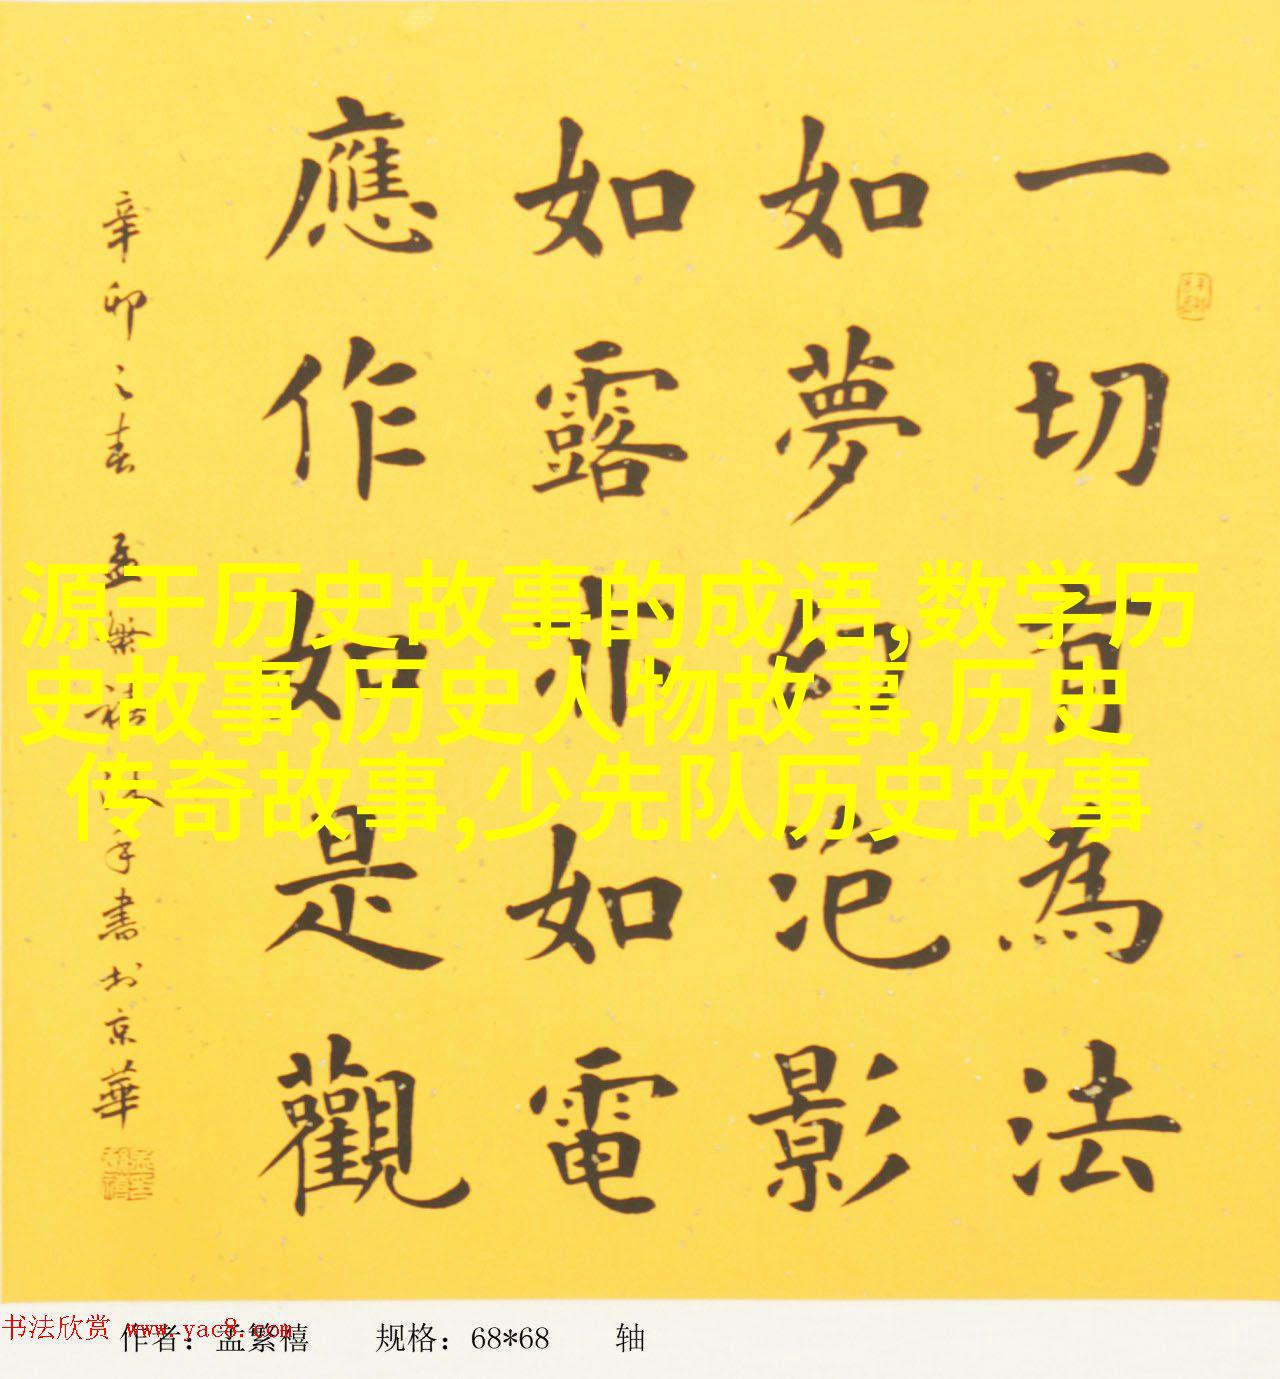 一切有為法
如夢幻泡影
如露亦如電
應作如是觀
辛卯之春 孟繁禧沐手書於京華
源于历史故事的成语,数学历
史故事,历史人物故事,历史
传奇故事,少先队历史故事
书法欣赏 www.yac8.com
作者：孟繁禧 规格：68*68 轴